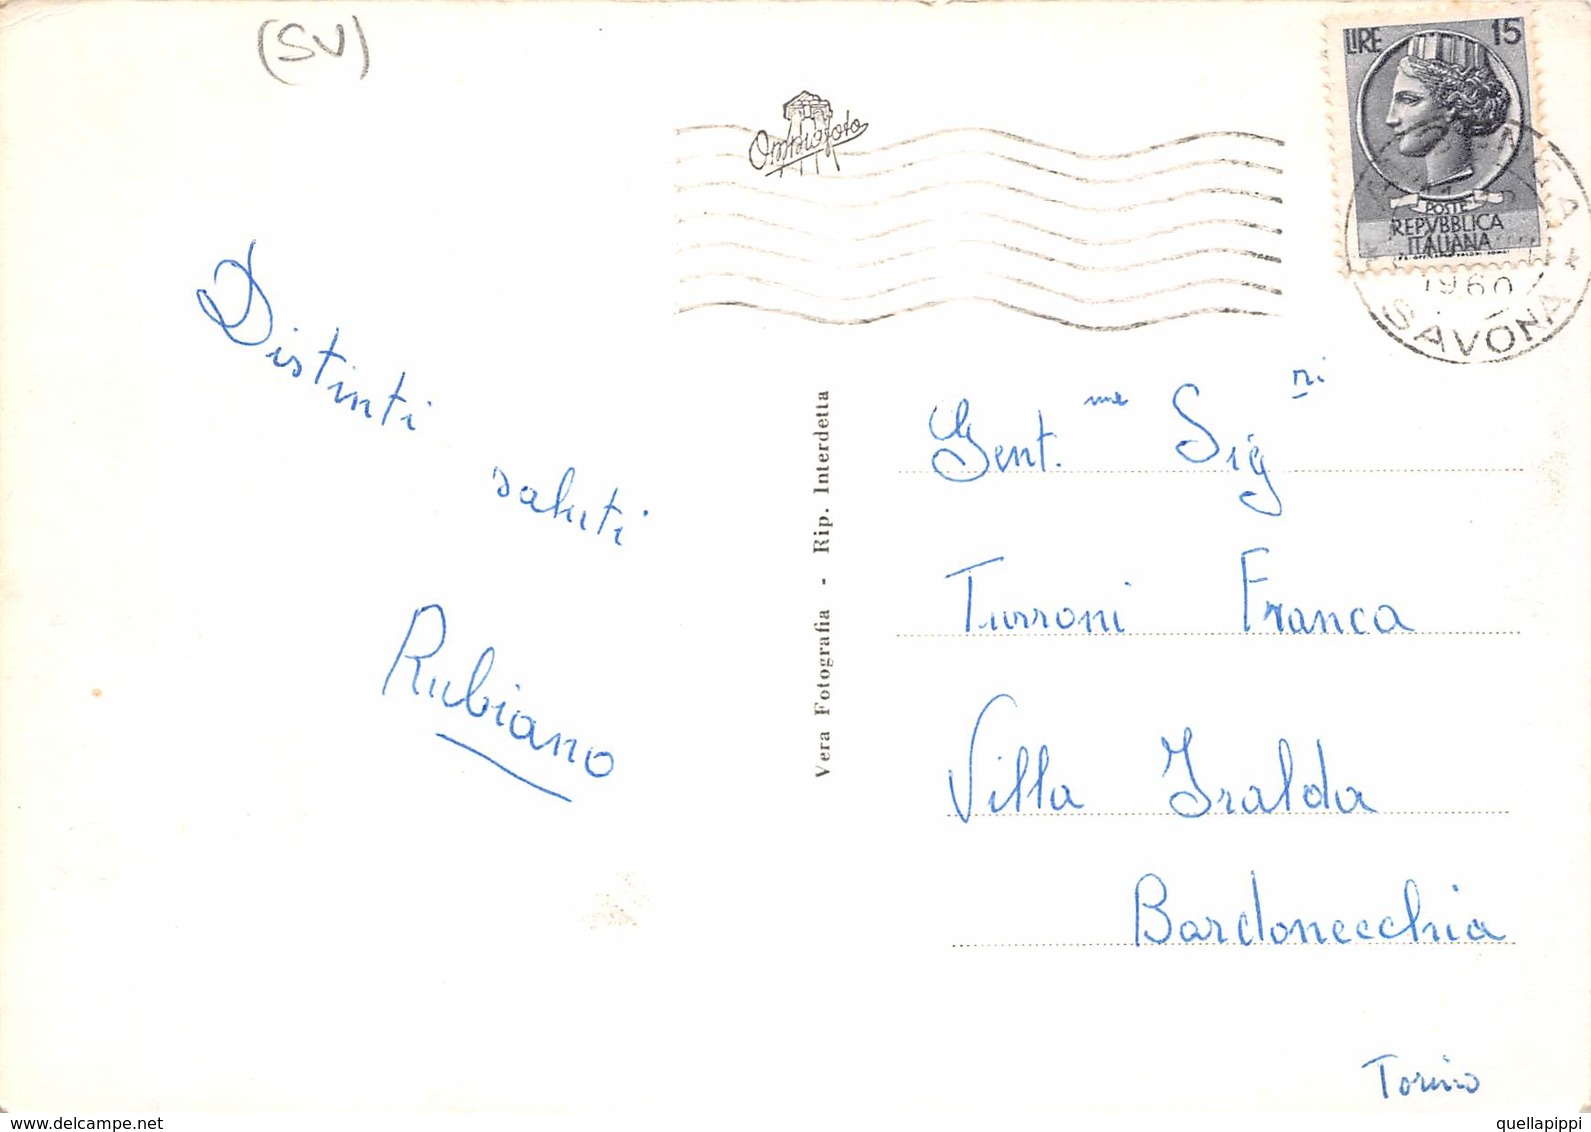 (SV)
LIRE 15
POSTE
REPVBBLICA
ITALIANA
1960
SAVONA
Omniafoto
Distinti
saluti
Rubiano
Vera Fotografia - Rip. Interdetta
Gent.me Sig.ri
Turroni Franca
Villa Iralda
Bardonecchia
Torino
www.delcampe.net
quellapippi